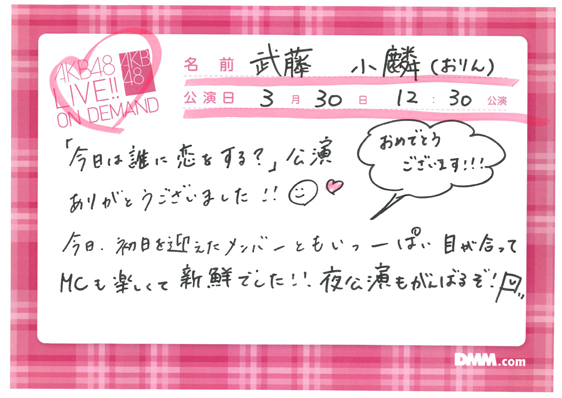 AKB48
LIVE!!
ON DEMAND
AKB
48
名前 武藤 小麟(おりん)
公演日 3月30日 12:30公演
「今日は誰に恋をする?」公演
ありがとうございました!!
おめでとう
ございます!!!
今日、初日を迎えたメンバーともいっーぱい目が合って
MCも楽しくて新鮮でした!!夜公演もがんばるぞ!
DMM.com